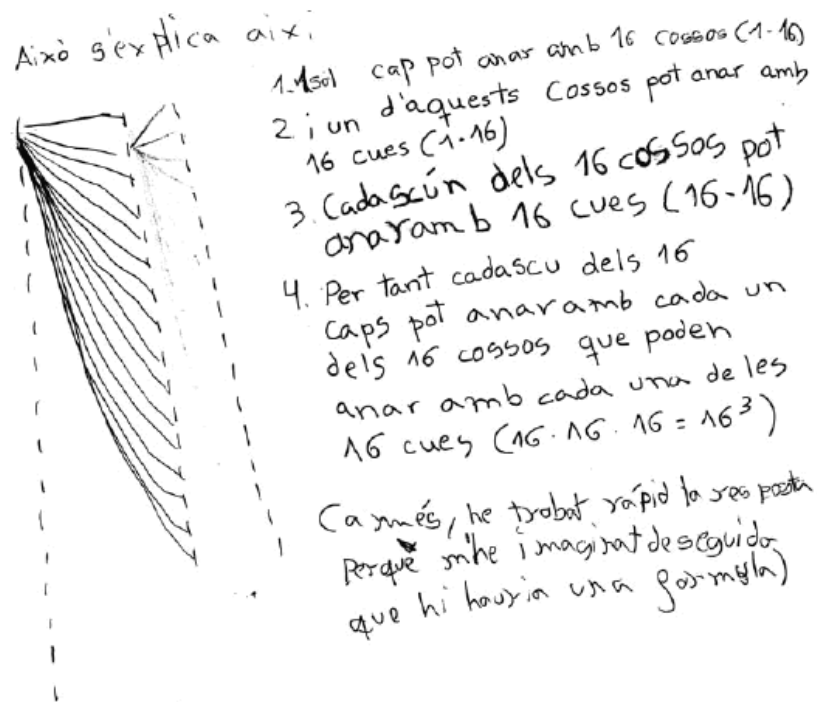 Això s'explica així
1. 1 sol cap pot anar amb 16 cossos (1·16)
2 i un d'aquests cossos pot anar amb
16 cues (1·16)
3. Cadascún dels 16 cossos pot
anar amb 16 cues (16·16)
4. Per tant cadascu dels 16
caps pot anar amb cada un
dels 16 cossos que poden
anar amb cada una de les
16 cues (16·16·16 = 16³)
(a més, he trobat rápid la resposta
Perquè m'he imaginat deseguida
que hi hauria una formula)